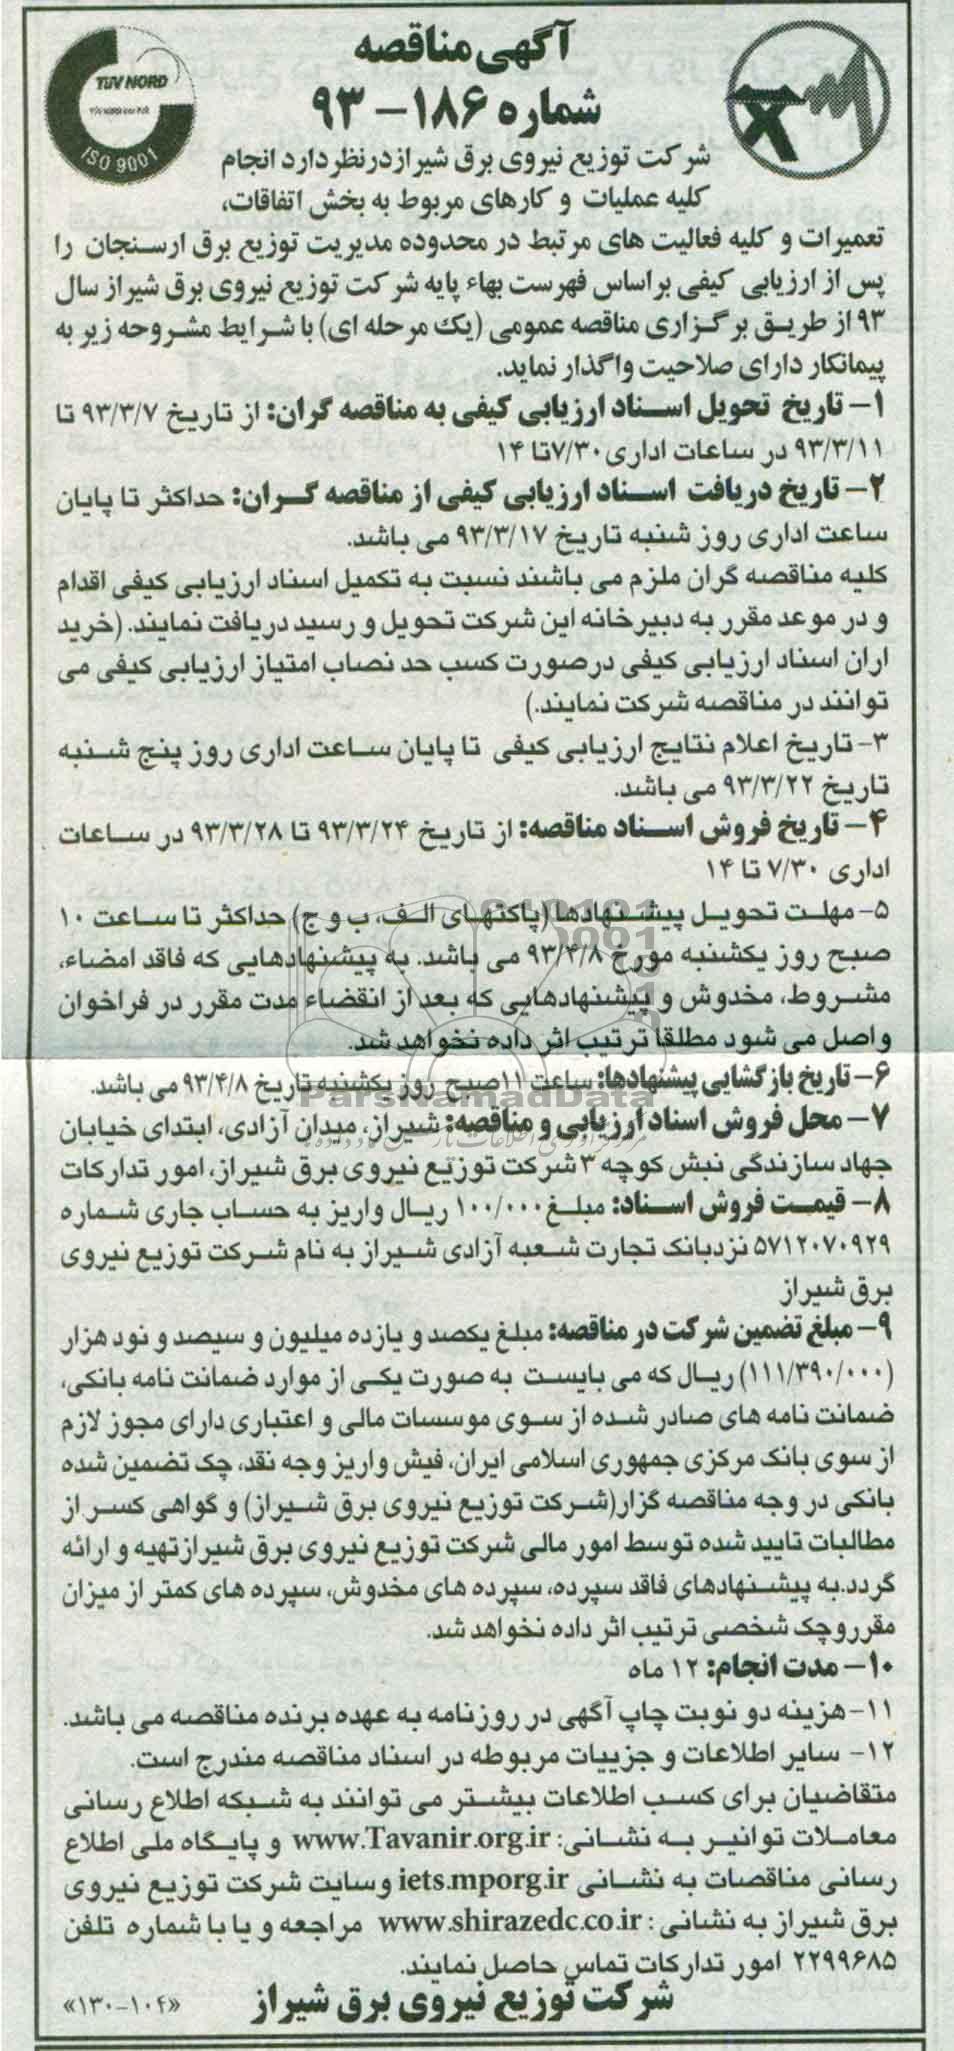 آگهی مناقصه
شماره ۱۸۶- ۹۳
TÜV NORD
ISO 9001
شرکت توزیع نیروی برق شیراز در نظر دارد انجام
کلیه عملیات و کارهای مربوط به بخش اتفاقات،
تعمیرات و کلیه فعالیت های مرتبط در محدوده مدیریت توزیع برق ارسنجان را
پس از ارزیابی کیفی براساس فهرست بهاء پایه شرکت توزیع نیروی برق شیراز سال
۹۳ از طریق برگزاری مناقصه عمومی (یک مرحله ای) با شرایط مشروحه زیر به
پیمانکار دارای صلاحیت واگذار نماید.
۱- تاریخ تحویل اسناد ارزیابی کیفی به مناقصه گران: از تاریخ ۹۳/۳/۷ تا
۹۳/۳/۱۱ در ساعات اداری ۷/۳۰ تا ۱۴
۲- تاریخ دریافت اسناد ارزیابی کیفی از مناقصه گران: حداکثر تا پایان
ساعت اداری روز شنبه تاریخ ۹۳/۳/۱۷ می باشد.
کلیه مناقصه گران ملزم می باشند نسبت به تکمیل اسناد ارزیابی کیفی اقدام
و در موعد مقرر به دبیرخانه این شرکت تحویل و رسید دریافت نمایند. (خرید
اران اسناد ارزیابی کیفی درصورت کسب حد نصاب امتیاز ارزیابی کیفی می
توانند در مناقصه شرکت نمایند.)
۳- تاریخ اعلام نتایج ارزیابی کیفی تا پایان ساعت اداری روز پنج شنبه
تاریخ ۹۳/۳/۲۲ می باشد.
۴- تاریخ فروش اسناد مناقصه: از تاریخ ۹۳/۳/۲۴ تا ۹۳/۳/۲۸ در ساعات
اداری ۷/۳۰ تا ۱۴
۵- مهلت تحویل پیشنهادها (پاکتهای الف، ب و ج) حداکثر تا ساعت ۱۰
صبح روز یکشنبه مورخ ۹۳/۴/۸ می باشد. به پیشنهادهایی که فاقد امضاء،
مشروط، مخدوش و پیشنهادهایی که بعد از انقضاء مدت مقرر در فراخوان
واصل می شود مطلقاً ترتیب اثر داده نخواهد شد.
۶- تاریخ بازگشایی پیشنهادها: ساعت ۱۱ صبح روز یکشنبه تاریخ ۹۳/۴/۸ می باشد.
ParsNamadData
۷- محل فروش اسناد ارزیابی و مناقصه: شیراز، میدان آزادی، ابتدای خیابان
جهاد سازندگی نبش کوچه ۳ شرکت توزیع نیروی برق شیراز، امور تدارکات
۸- قیمت فروش اسناد: مبلغ ۱۰۰/۰۰۰ ریال واریز به حساب جاری شماره
۵۷۱۲۰۷۰۹۲۹ نزد بانک تجارت شعبه آزادی شیراز به نام شرکت توزیع نیروی
برق شیراز
۹- مبلغ تضمین شرکت در مناقصه: مبلغ یکصد و یازده میلیون و سیصد و نود هزار
(۱۱۱/۳۹۰/۰۰۰) ریال که می بایست به صورت یکی از موارد ضمانت نامه بانکی،
ضمانت نامه های صادر شده از سوی موسسات مالی و اعتباری دارای مجوز لازم
از سوی بانک مرکزی جمهوری اسلامی ایران، فیش واریز وجه نقد، چک تضمین شده
بانکی در وجه مناقصه گزار(شرکت توزیع نیروی برق شیراز) و گواهی کسر از
مطالبات تایید شده توسط امور مالی شرکت توزیع نیروی برق شیراز تهیه و ارائه
گردد.به پیشنهادهای فاقد سپرده، سپرده های مخدوش، سپرده های کمتر از میزان
مقرروچک شخصی ترتیب اثر داده نخواهد شد.
۱۰- مدت انجام: ۱۲ ماه
۱۱- هزینه دو نوبت چاپ آگهی در روزنامه به عهده برنده مناقصه می باشد.
۱۲- سایر اطلاعات و جزییات مربوطه در اسناد مناقصه مندرج است.
متقاضیان برای کسب اطلاعات بیشتر می توانند به شبکه اطلاع رسانی
معاملات توانیر به نشانی: www.Tavanir.org.ir و پایگاه ملی اطلاع
رسانی مناقصات به نشانی iets.mporg.ir و سایت شرکت توزیع نیروی
برق شیراز به نشانی : www.shirazedc.co.ir مراجعه و یا با شماره تلفن
۲۲۹۹۶۸۵ امور تدارکات تماس حاصل نمایند.
شرکت توزیع نیروی برق شیراز
«۱۳۰-۱۰۴»